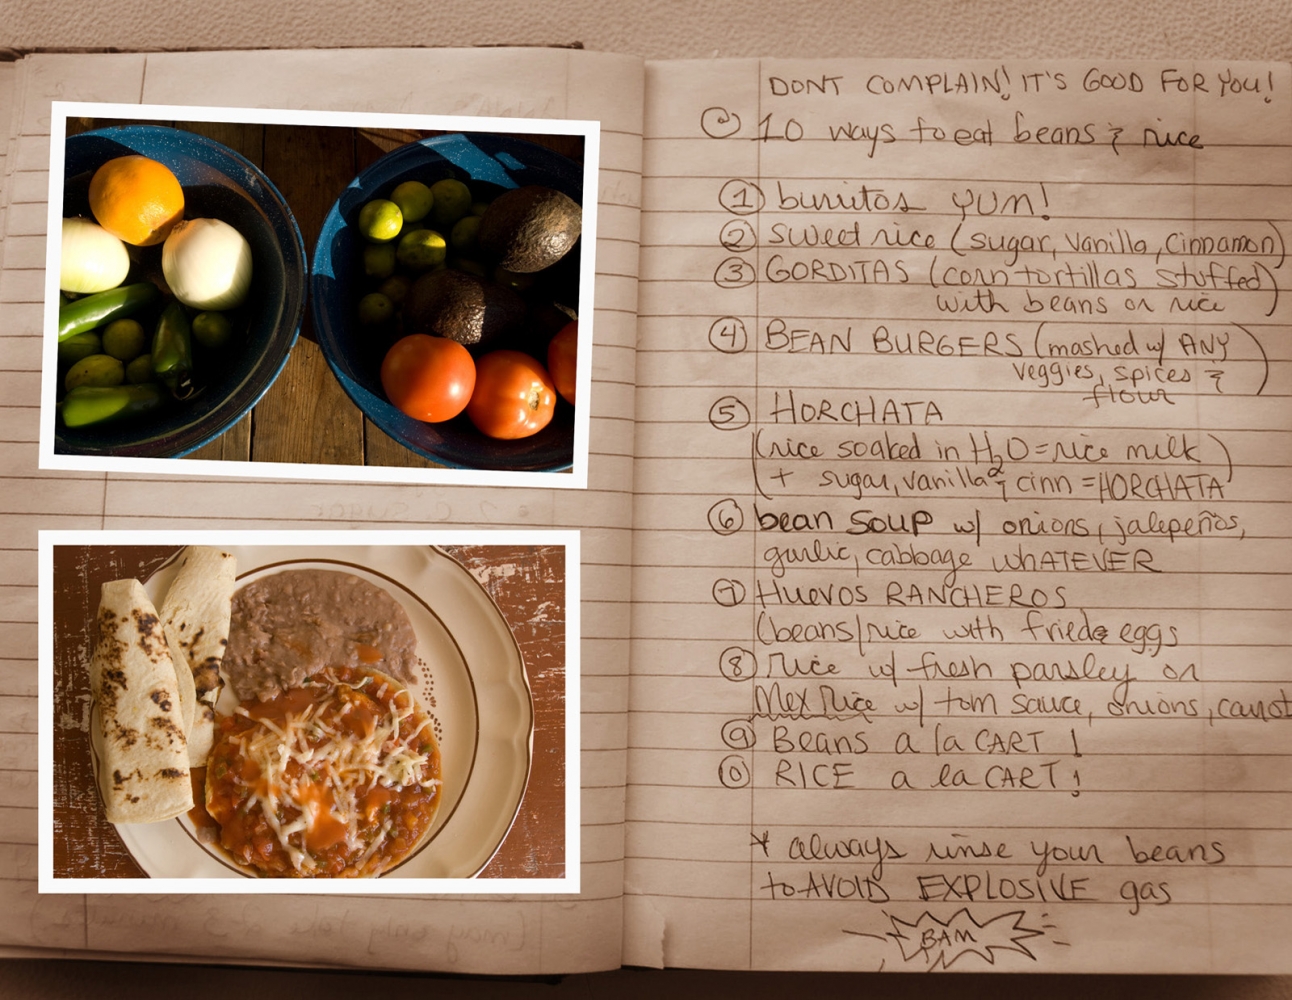 DONT COMPLAIN! IT'S GOOD FOR YOU!
10 ways to eat beans & rice
① burritos YUM!
② sweet rice (sugar, vanilla, cinnamon)
③ GORDITAS (corn tortillas stuffed)
with beans or rice
④ BEAN BURGERS (mashed w/ ANY
veggies, spices &
flour)
⑤ HORCHATA
(rice soaked in H2O = rice milk
+ sugar, vanilla & cinn = HORCHATA)
⑥ bean SOUP w/ onions, jalepeños,
garlic, cabbage WHATEVER
⑦ HUEVOS RANCHEROS
(beans/rice with fried eggs
⑧ rice w/ fresh parsley or
Mex Rice w/ tom sauce, onions, carrot
⑨ BEANS a la CART!
⑩ RICE a la CART!
* always rinse your beans
to AVOID EXPLOSIVE gas
BAM